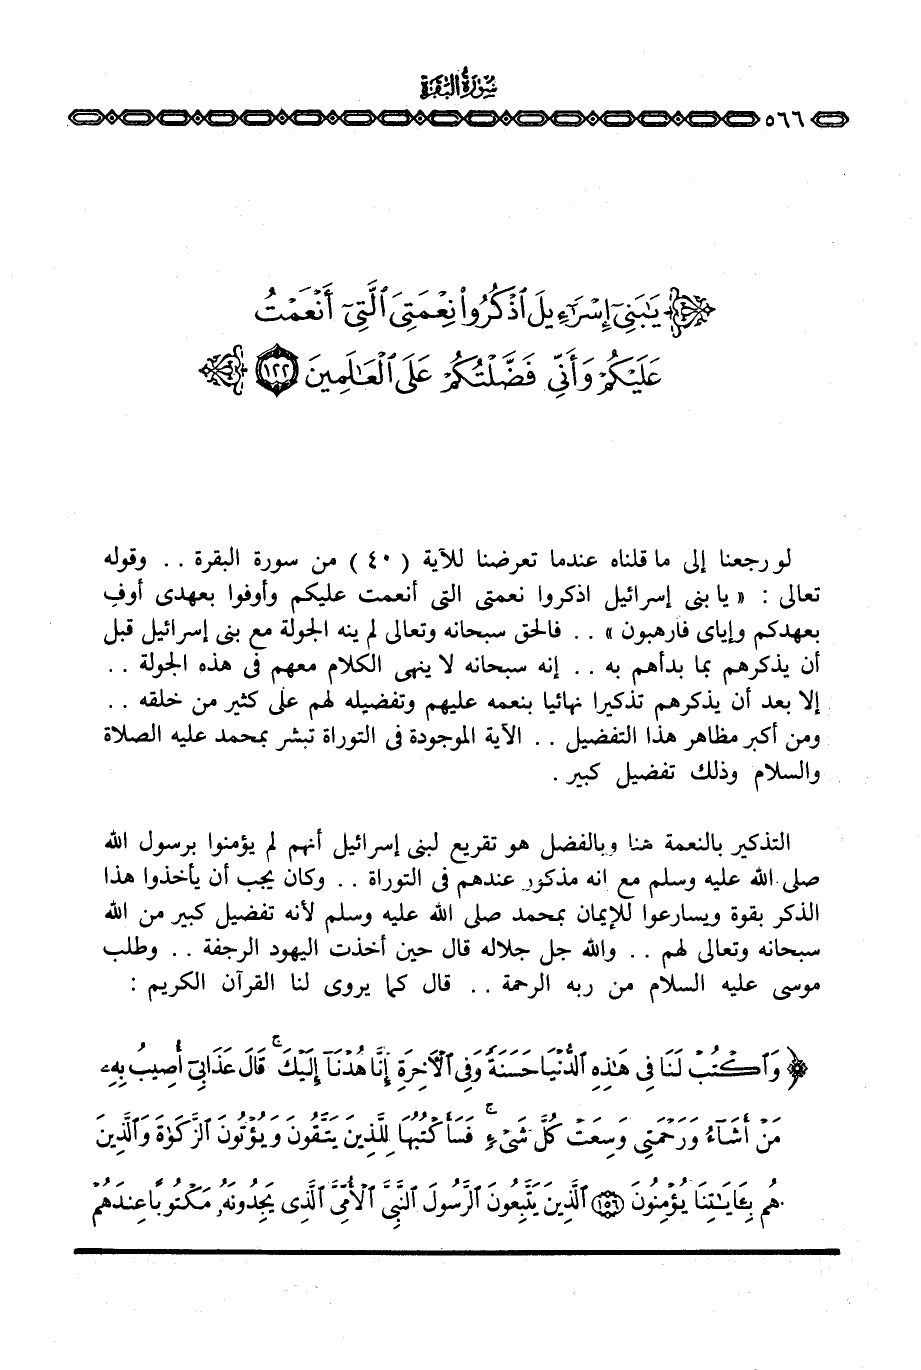 سورة البقرة
٥٦٦
يَٰبَنِىٓ إِسْرَٰٓءِيلَ ٱذْكُرُوا۟ نِعْمَتِىَ ٱلَّتِىٓ أَنْعَمْتُ
عَلَيْكُمْ وَأَنِّى فَضَّلْتُكُمْ عَلَى ٱلْعَٰلَمِينَ ١٢٢
لو رجعنا إلى ما قلناه عندما تعرضنا للآية ( ٤٠ ) من سورة البقرة . . وقوله
تعالى : « يا بنى إسرائيل اذكروا نعمتى التى أنعمت عليكم وأوفوا بعهدى أوفِ
بعهدكم وإياى فارهبون » . . فالحق سبحانه وتعالى لم ينه الجولة مع بنى إسرائيل قبل
أن يذكرهم بما بدأهم به . . إنه سبحانه لا ينهى الكلام معهم فى هذه الجولة . .
إلا بعد أن يذكرهم تذكيرا نهائيا بنعمه عليهم وتفضيله لهم على كثير من خلقه . .
ومن أكبر مظاهر هذا التفضيل . . الآية الموجودة فى التوراة تبشر بمحمد عليه الصلاة
والسلام وذلك تفضيل كبير .
التذكير بالنعمة هنا وبالفضل هو تقريع لبنى إسرائيل أنهم لم يؤمنوا برسول الله
صلى الله عليه وسلم مع انه مذكور عندهم فى التوراة . . وكان يجب أن يأخذوا هذا
الذكر بقوة ويسارعوا للإيمان بمحمد صلى الله عليه وسلم لأنه تفضيل كبير من الله
سبحانه وتعالى لهم . . والله جل جلاله قال حين أخذت اليهود الرجفة . . وطلب
موسى عليه السلام من ربه الرحمة . . قال كما يروى لنا القرآن الكريم :
﴿ وَٱكْتُبْ لَنَا فِى هَٰذِهِ ٱلدُّنْيَا حَسَنَةً وَفِى ٱلْءَاخِرَةِ إِنَّا هُدْنَآ إِلَيْكَ ۚ قَالَ عَذَابِىٓ أُصِيبُ بِهِۦ
مَنْ أَشَآءُ وَرَحْمَتِى وَسِعَتْ كُلَّ شَىْءٍ ۚ فَسَأَكْتُبُهَا لِلَّذِينَ يَتَّقُونَ وَيُؤْتُونَ ٱلزَّكَوٰةَ وَٱلَّذِينَ
هُم بِـَٔايَٰتِنَا يُؤْمِنُونَ ١٥٦ ٱلَّذِينَ يَتَّبِعُونَ ٱلرَّسُولَ ٱلنَّبِىَّ ٱلْأُمِّىَّ ٱلَّذِى يَجِدُونَهُۥ مَكْتُوبًا عِندَهُمْ